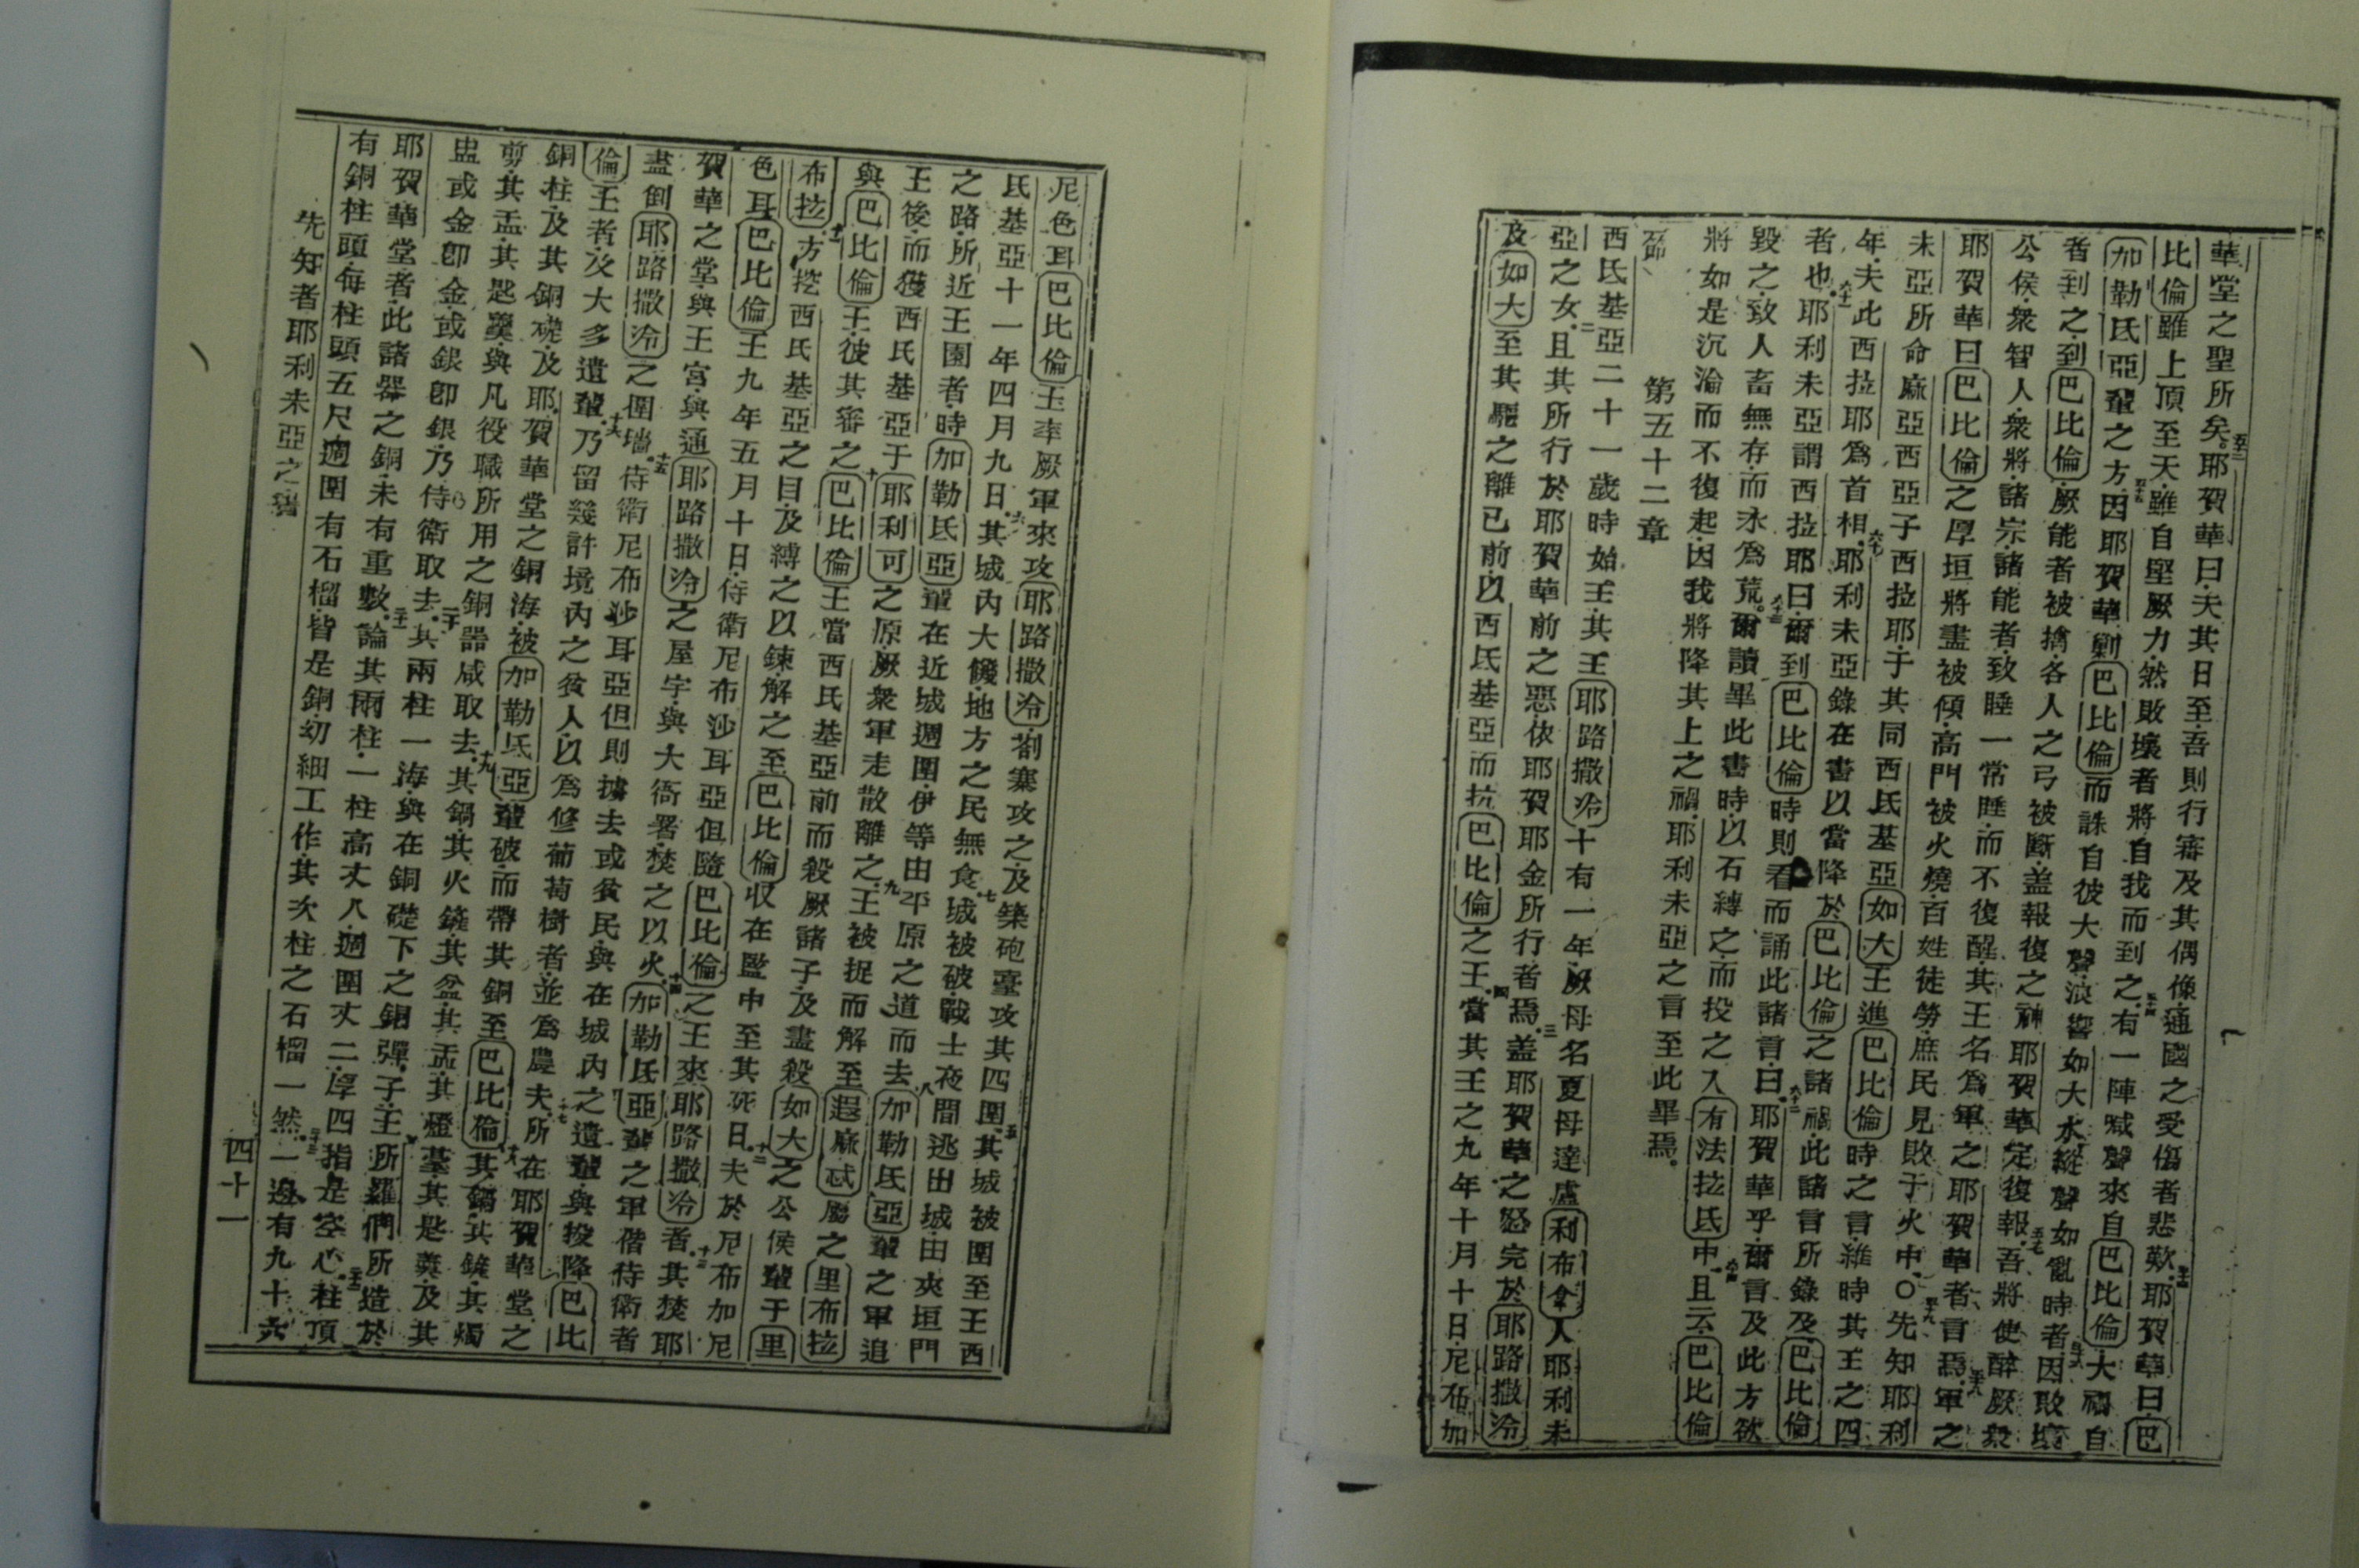 華堂之聖所矣五二耶賀華曰夫其日至吾則行審及其偶像通國之受傷者悲歎五三耶賀華曰巴
比倫雖上頂至天雖自堅厥力然敗壞者將自我而到之五四有一陣喊聲來自巴比倫大禍自
加勒氏亞輩之方五五因耶賀華剿巴比倫而誅自彼大聲浪響如大水縱聲如亂時者五六因敗壞
者到之到巴比倫厥能者被擒各人之弓被斷盖報復之神耶賀華定復報五七吾將使醉厥衆
公侯衆智人衆將諸宗諸能者致睡一常睡而不復醒其王名為軍之耶賀華者言焉五八軍之
耶賀華曰巴比倫之厚垣將盡被傾高門被火燒百姓徒勞庶民見敗于火中○五九先知耶利
未亞所命麻亞西亞子西拉耶于其同西氏基亞如大王進巴比倫時之言維時其王之四
年夫此西拉耶為首相六十耶利未亞錄在書以當降於巴比倫之諸禍此諸言所錄及巴比倫
者也六一耶利未亞謂西拉耶曰爾到巴比倫時則看而誦此諸言六二曰耶賀華乎爾言及此方欲
毀之致人畜無存而永為荒六三爾讀畢此書時以石縳之而投之入有法拉氐中六四且云巴比倫
將如是沉淪而不復起因我將降其上之禍耶利未亞之言至此畢焉
第五十二章
西氏基亞二十一歲時始王其王耶路撒冷十有一年厥母名夏母達盧利布拿人耶利未
亞之女二且其所行於耶賀華前之惡依耶賀耶金所行者焉三盖耶賀華之怒完於耶路撒冷
及如大至其驅之離已前以西氏基亞而抗巴比倫之王四當其王之九年十月十日尼布加
尼色耳巴比倫王率厥軍來攻耶路撒冷劄寨攻之及築砲臺攻其四圍五其城被圍至王西
氏基亞十一年四月九日六其城內大饑地方之民無食七城被破戰士夜間逃出城由夾垣門
之路所近王園者時加勒氏亞輩在近城週圍伊等由平原之道而去八加勒氏亞輩之軍追
王後而獲西氏基亞于耶利可之原厥衆軍走散離之九王被捉而解至遐麻忒屬之里布拉
與巴比倫王彼其審之十巴比倫王當西氏基亞前而殺厥諸子及盡殺如大之公侯輩于里
布拉十一方挖西氏基亞之目及縳之以鍊解之至巴比倫収在監中至其死日十二夫於尼布加尼
色耳巴比倫王九年五月十日侍衛尼布沙耳亞但隨巴比倫之王來耶路撒冷者十三其焚耶
賀華之堂與王宮與通耶路撒冷之屋宇與大衙署焚之以火十四加勒氐亞輩之軍偕侍衛者
盡倒耶路撒冷之圍墻十五侍衛尼布沙耳亞但則擄去或貧民與在城內之遺輩與投降巴比
倫王者及大多遺輩十六乃留幾許境內之貧人以為修葡萄樹者並為農夫十七所在耶賀華堂之
銅柱及其銅礎及耶賀華堂之銅海被加勒氐亞輩破而帶其銅至巴比倫十八其鍋其鏟其燭
剪其盂其匙羹與凡役職所用之銅器咸取去十九其鍋其火鏟其盆其盂其燈臺其匙羹及其
盅或金卽金或銀卽銀乃侍衛取去二十其兩柱一海與在銅礎下之銅彈子王所羅們所造於
耶賀華堂者此諸器之銅未有重數二一論其兩柱一柱高丈八週圍丈二厚四指是空心二二柱頂
有銅柱頭每柱頭五尺週圍有石榴皆是銅幼細工作其次柱之石榴一然二三一邊有九十六
先知者耶利未亞之書
四十一